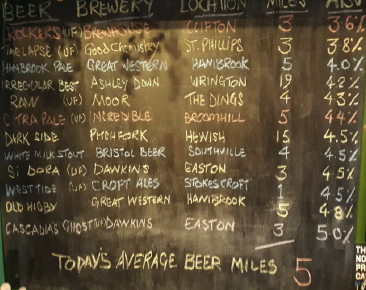 BEER BREWERY LOCATION MILES ABV
ROCKERS (UF) BREWHOUSE CLIFTON 3 3.6%
TIMELAPSE (UF) Good Chemistry ST. PHILLIPS 3 3.8%
HAMBROOK PALE GREAT WESTERN HAMBROOK 5 4.0%
IRREGULAR BEST ASHLEY DOWN WRINGTON 19 4.2%
RAW (UF) MOOR THE DINGS 4 4.3%
C TRA PALE (UF) INCREDIBLE BROOMHILL 5 4.4%
DARK SIDE PITCHFORK HEWISH 15 4.5%
WHITE MILK STOUT BRISTOL BEER SOUTHVILLE 4 4.5%
SI DORA (UF) DAWKINS EASTON 3 4.5%
WEST TIDE (UF) CROFT ALES STOKES CROFT 1 4.5%
OLD HIGBY GREAT WESTERN HAMBROOK 5 4.8%
CASCADIAS GHOST (UF) DAWKINS EASTON 3 5.0%
TODAY'S AVERAGE BEER MILES 5